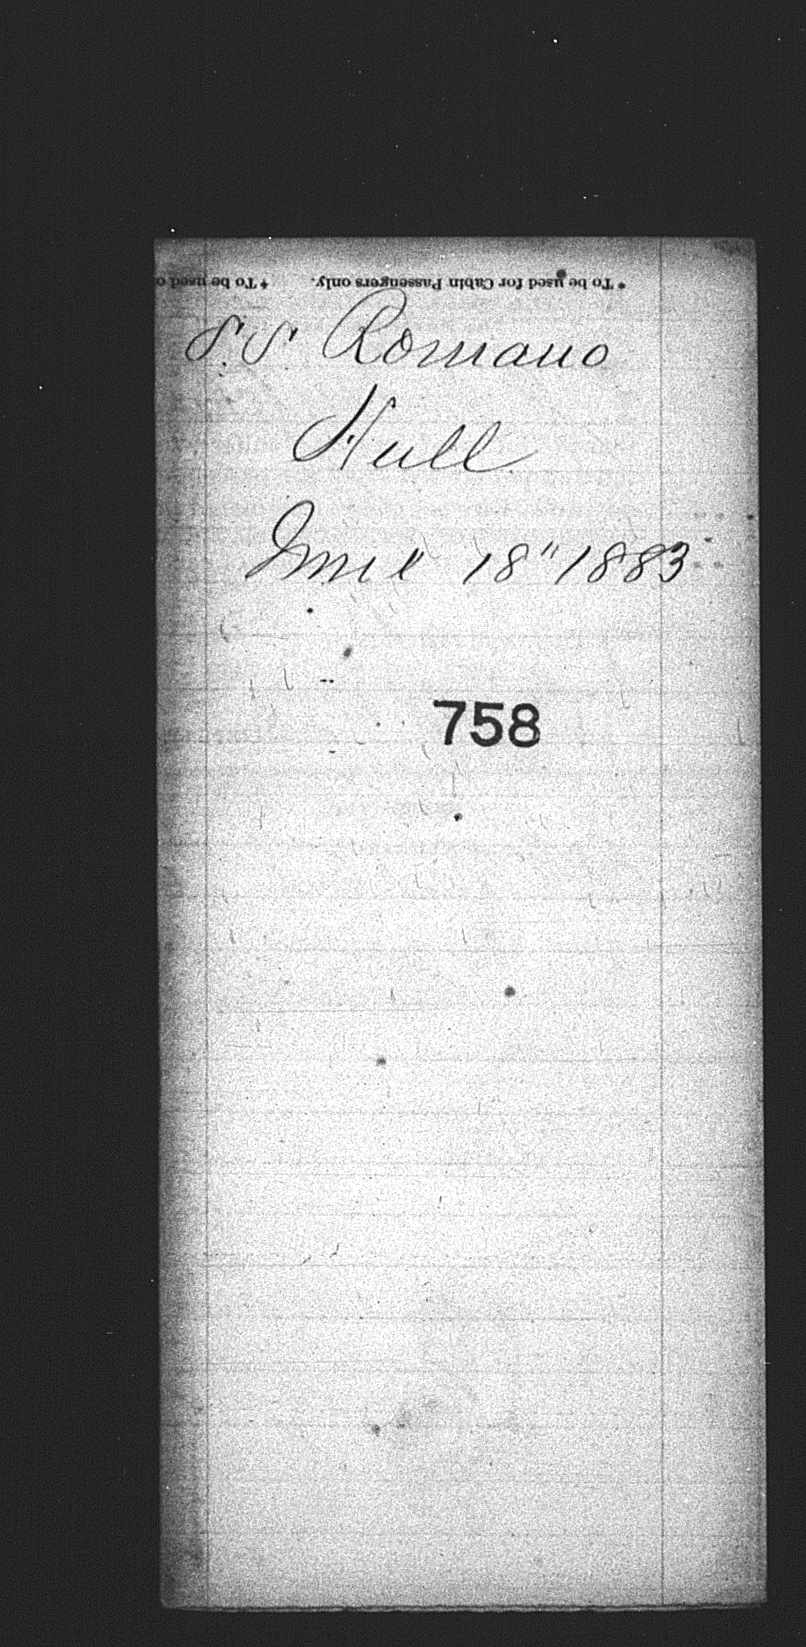 * To be used for Cabin Passengers only. * To be used o
S.S. Romano
Hull
June 18" 1883
758